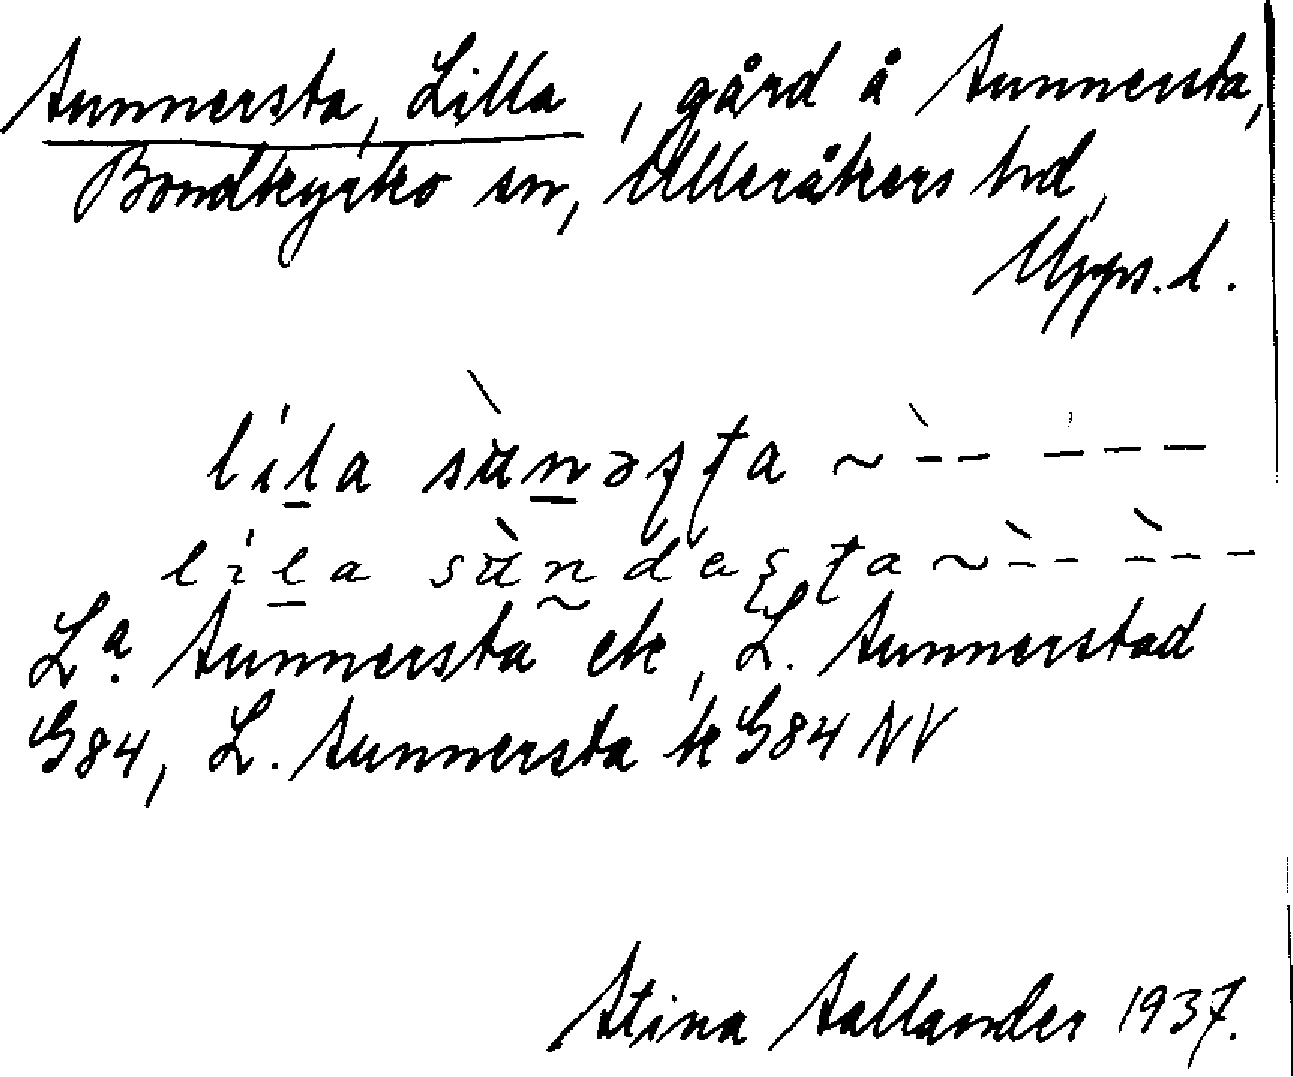 Sunnersta, Lilla, gård å Sunnersta,
Bondkyrko sn, Ulleråkers hd,
Upps. l.
lila sùnəʂʈa ~ `-- '---
lila sùndaʂʈa ~ `-- `---
Lª. Sunnersta ek, L. Sunnerstad
G84, L. Sunnersta k G84 NV
Stina Sallander 1937.